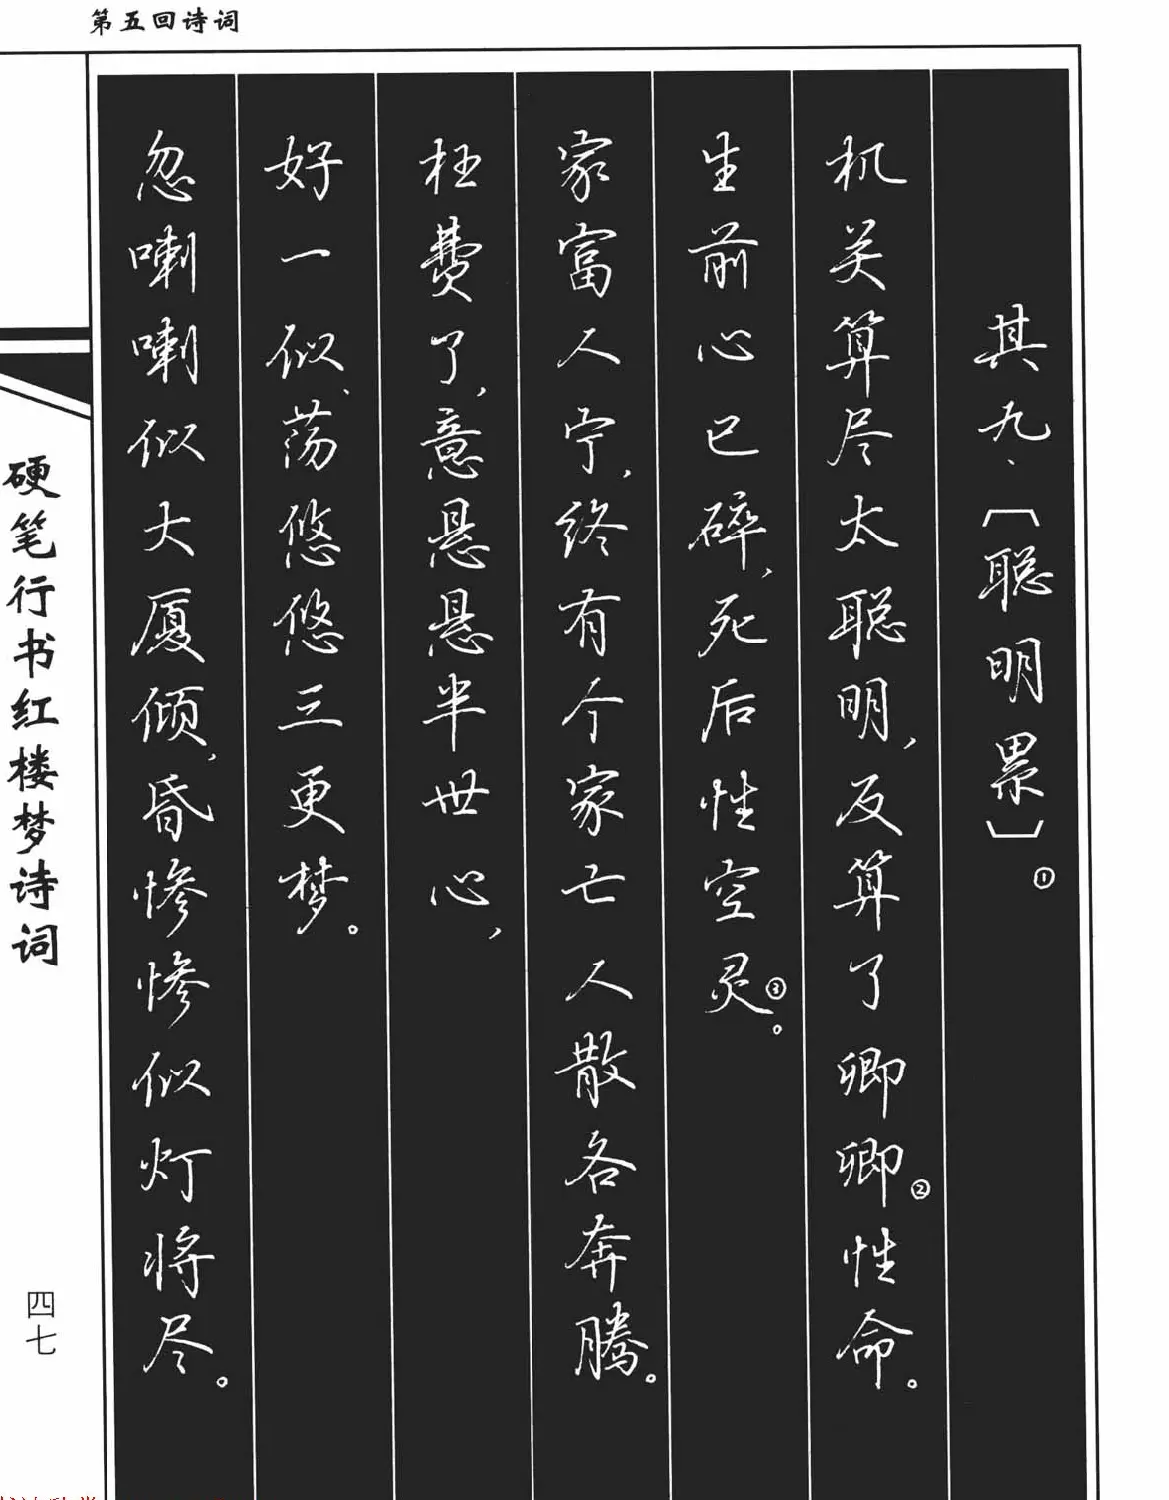 第五回诗词
其九、〔聪明累〕①
机关算尽太聪明，反算了卿卿②性命。
生前心已碎，死后性空灵③。
家富人宁，终有个家亡人散各奔腾。
枉费了，意悬悬半世心，
好一似、荡悠悠三更梦。
忽喇喇似大厦倾，昏惨惨似灯将尽。
硬笔行书红楼梦诗词
四七